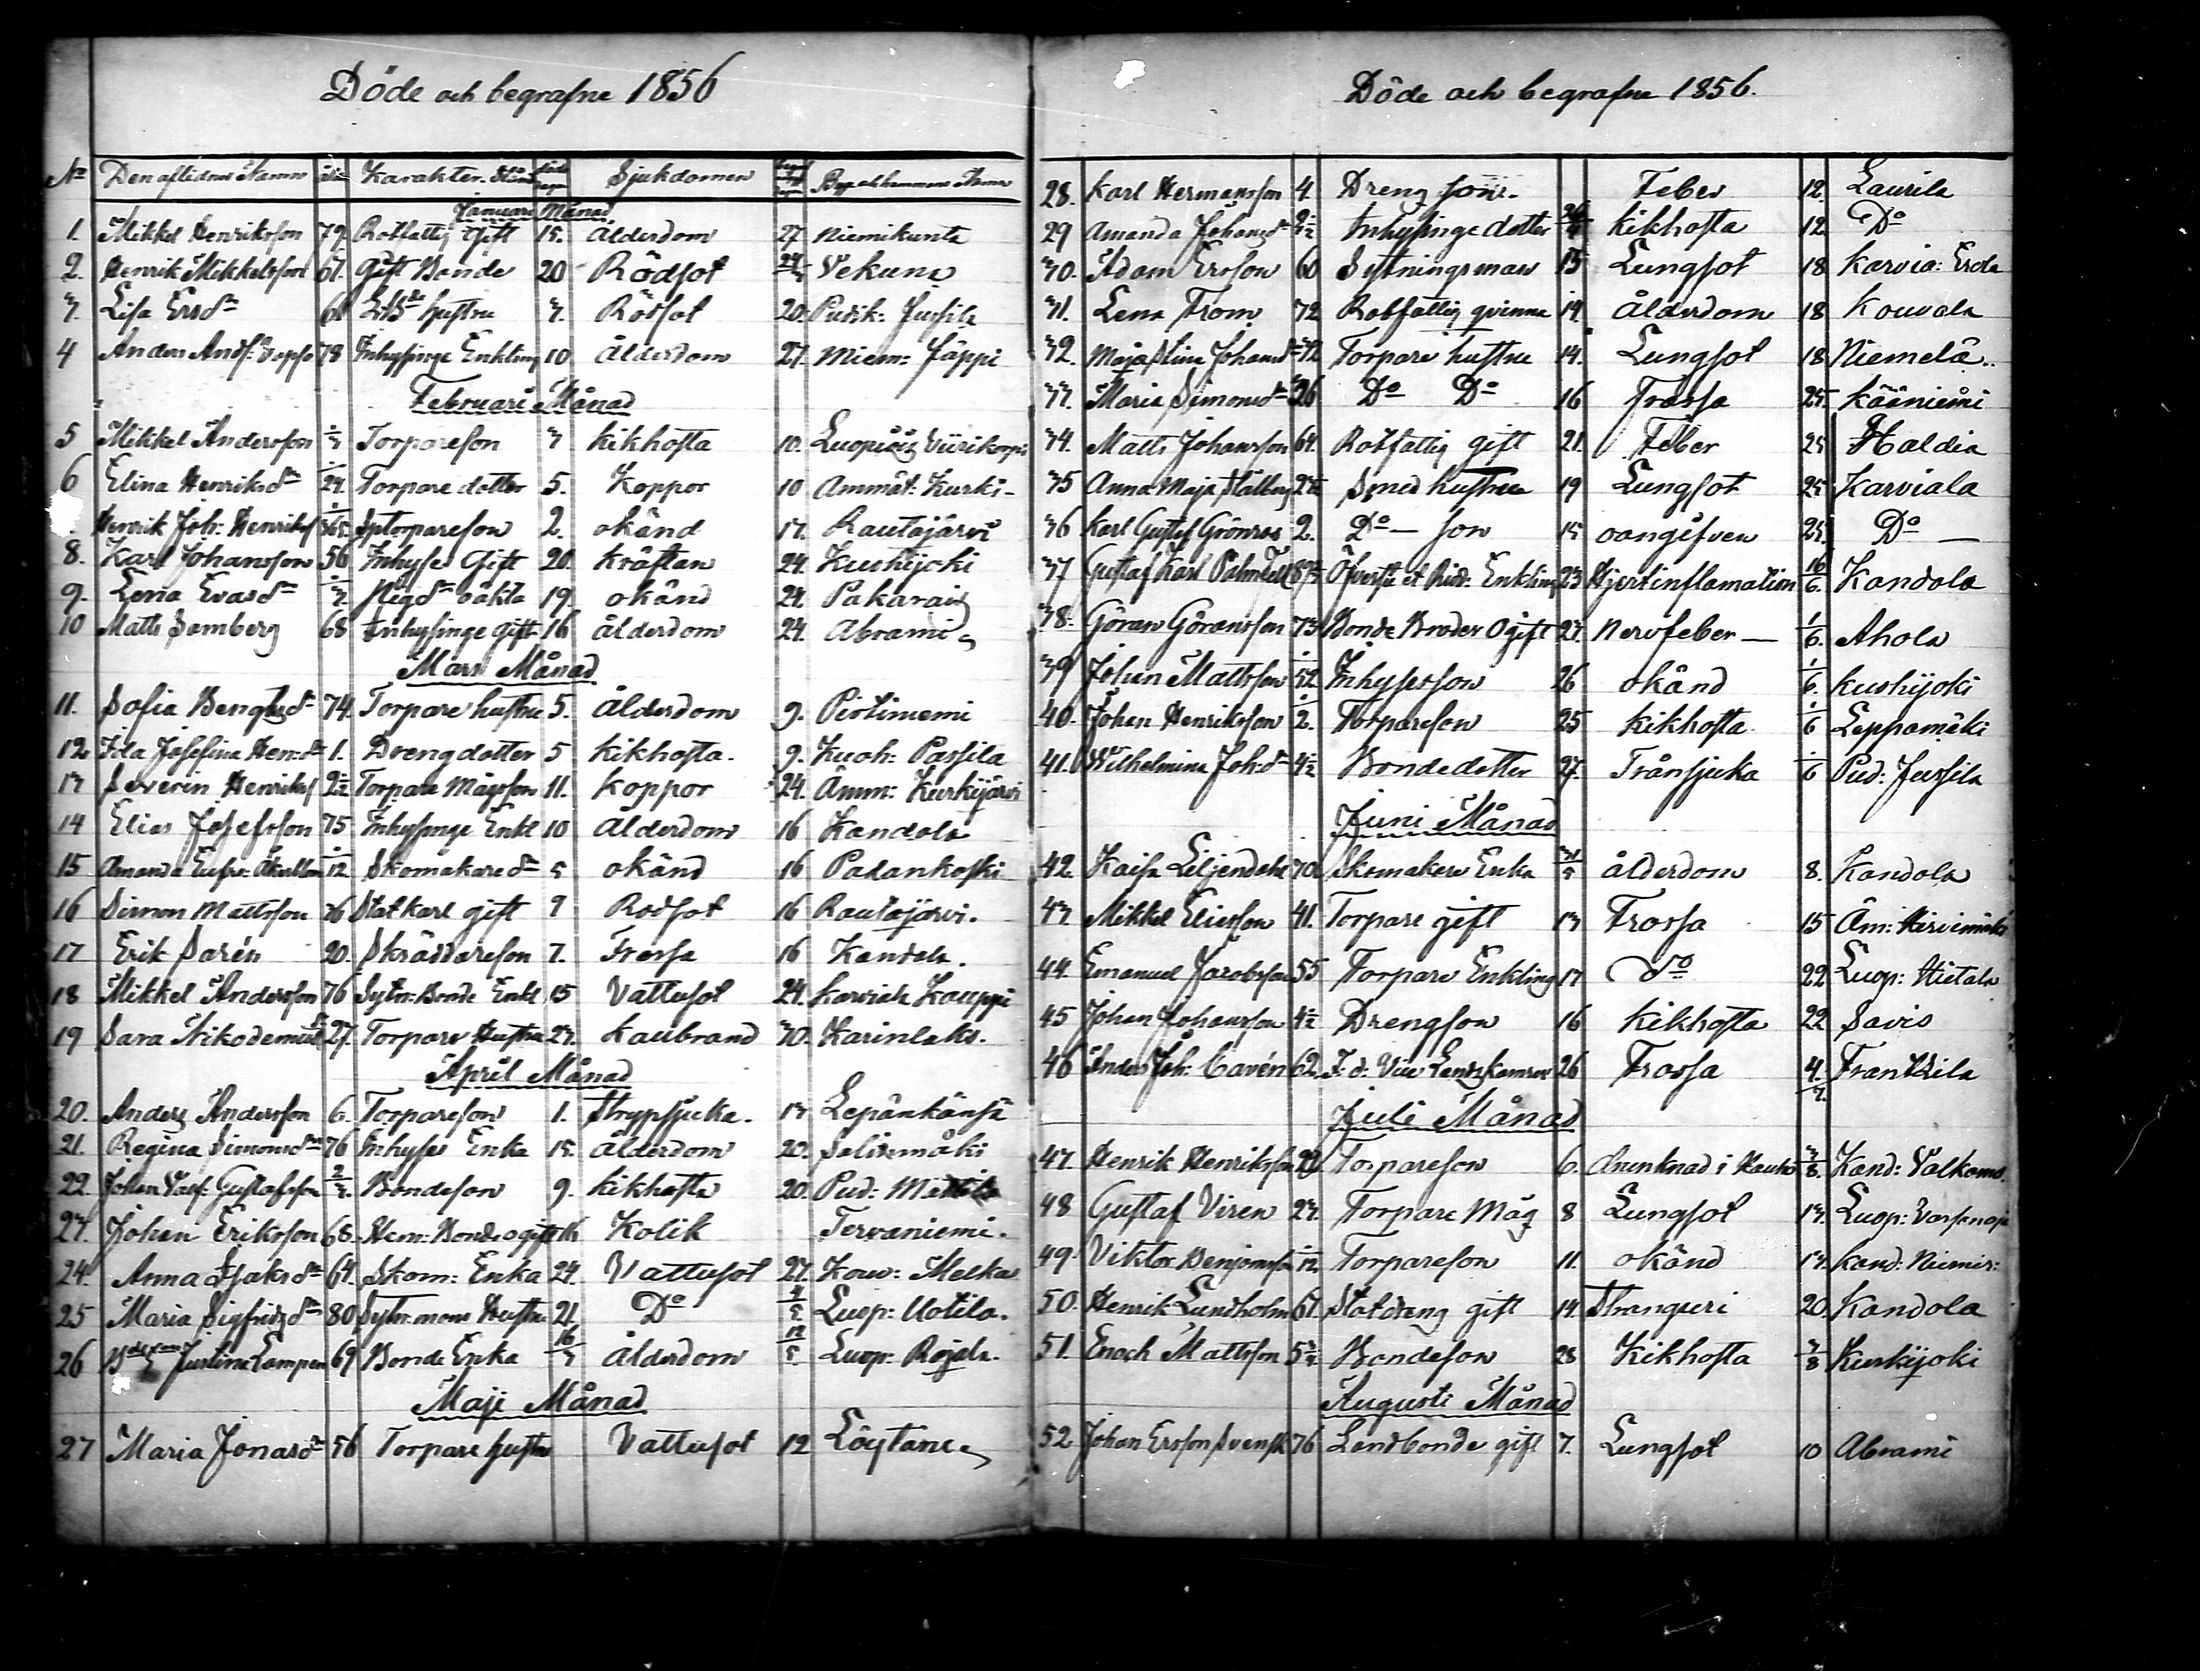 Döde och begrafne 1856
No Den aflidnes Namn Karakter Sjukdomen
Januari Månad
1. Mikkel Henriksson 79 Rotfattig Gift 15. ålderdom 27 Niemikunta
2. Henrik Mikkelsson 67. Gift Bonde 20 Rödsot Vekuna
3. Lisa Ersdr hustru 3. Rödsot 20. Pudik: Jussila
4 Anders 78 Inhysinge Enkling 10 ålderdom 27. Jäppi
Februari Månad
5 Mikkel Andersson Torpareson 3 kikhosta 10. Luopiois
6 Elina Henriksdr Torpare dotter 5. Koppor 10 Ammät: Kurki-
Henrik Joh: Henrikss Sytorpareson 2. okänd 17. Rautajärvi
8. Karl Johansson 56 Inhyses Gift 20. kräftan 24. Kuohijoki
9. Lena Evasdr Pigdr oäkta 19. okänd 24. Pakarais
10 Matts Samberg 68 Inhysinge Gift 16 ålderdom 24. Abrami
Mars Månad
11. Sofia Bengtsdr 74. Torpare hustru 5. ålderdom 9. Piotiniemi
12. Ida Josefina Hen:dr 1. Drengdotter 5 kikhosta. 9. Kuoh: Passila
13 Severin Henrikss Torpare Mågsson 11. koppor 24. Ämm: Kurkijärvi
14 Elias Josefsson 75 Inhysinge Enkl 10 ålderdom 16 Kandola
15 Amanda Skomakaredr 5 okänd 16 Padankoski
16 Simon Mattsson 36 Statkarl gift 9 Rödsot 16 Rautajärvi.
17 Erik Sarén 20. Skräddareson 7. Frossa 16 Kandola.
18 Mikkel Andersson 76 Sytn: Bonde Enkl 15 Vattusot 24. Karviala Kauppi
19 Sara Nikodemusdr 27. Torpare Hustru 23. Kallbrand 30. Karinlaks.
April Månad
20. Anders Andersson 6. Torpareson 1. Strypsjuka. 13 Lepänkänsä
21. Regina Simonsdr 76 Inhyses Enka 15. ålderdom 20. Salinmäki
22. Johan Gustafsson Bondeson 9. kikhosta 20. Pud: Mattila
23. Johan Eriksson 68. Hem: Bonde ogift 16 Kolik Tervaniemi.
24. Anna Isaksdr 64. Skom: Enka 24. Vattusot 27. Kouv: Melka
25 Maria Sigfridsdr 80 Sytn:mans Hustru 21. Do 4/5 Luop: Uotila.
26 Justina Lampen 69 Bonde Enka 16/3 ålderdom 12/5 Luop: Röjola.
Maji Månad
27 Maria Jonasdr 56 Torpare hustru Vattusot 12 Löytane
Döde och begrafne 1856.
28. Karl Hermansson 4. Dreng son. Feber 12. Laurila
29 Amanda Johansdr Inhysinge dotter kikhosta 12 Do
30. Adam Ersson 60 Sytningsman 15 Lungsot 18 Karvia: Erola
31. Lena From 72 Rotfattig qvinna 14. ålderdom 18 Kouvala
32. Maja Stina Johansdr Torpare hustru 14. Lungsot 18 Niemelä..
33. Maria Simonsdr 26 Do Do 16 Frossa 25. Kääniemi
34. Matts Johansson 64. Rotfattig gift 21. Feber 25 Haldia
35 Anna Maja Stålberg Smed hustru 19 Lungsot 25 Karviala
36 Karl Gustaf Grönroos 2. Do son 15 oangifven 25. Do
37 Gustaf Karl Enkling 23 Hjertinflamation 10/6. Kandola
38. Göran Göransson 73 Bonde Broder Ogift 27. Nervfeber 1/6. Ahola
39 Johan Mattsson Inhyseson 26 okänd 1/6. Kuohijoki
40. Johan Henriksson Torpareson 25 kikhosta 1/6 Leppamäki
41. Wilhelmina Joh:dr Bondedotter 27. Trånsjuka 1/6 Pud: Jussila
Juni Månad
42. Kaisa Liljendahl 70 Skomakare Enka ålderdom 8. Kandola
43. Mikkel Eliesson 41. Torpare gift 13 Frossa 15 Äm: Hirvimäki
44. Emanuel Jacobsson 55 Torpare Enkling 17 do 22 Luop: Hietala
45 Johan Johansson Drengson 16 kikhosta 22 Savio
46 Anders Joh: Cavén 62. F:d: Vice Landskamrer 26 Frossa 4/7. Frantzila
Juli Månad
47. Henrik Henriksson Torpareson 6. drunknad i Hauho 3/8. Kand: Valkams.
48 Gustaf Viren 27. Torpare Måg 8 Lungsot 13. Luop:
49 Viktor Benjamsson Torpareson 11. okänd 13. Kand: Niemis:
50. Henrik Lundholm 67. Statdreng gift 14 Stranguri 20. Kandola
51. Enoch Mattsson Bondeson 28 Kikhosta 3/8 Kuohijoki
Augusti Månad
52. Johan Ersson Svensk 76 Landbonde gift 7. Lungsot 10 Abrami